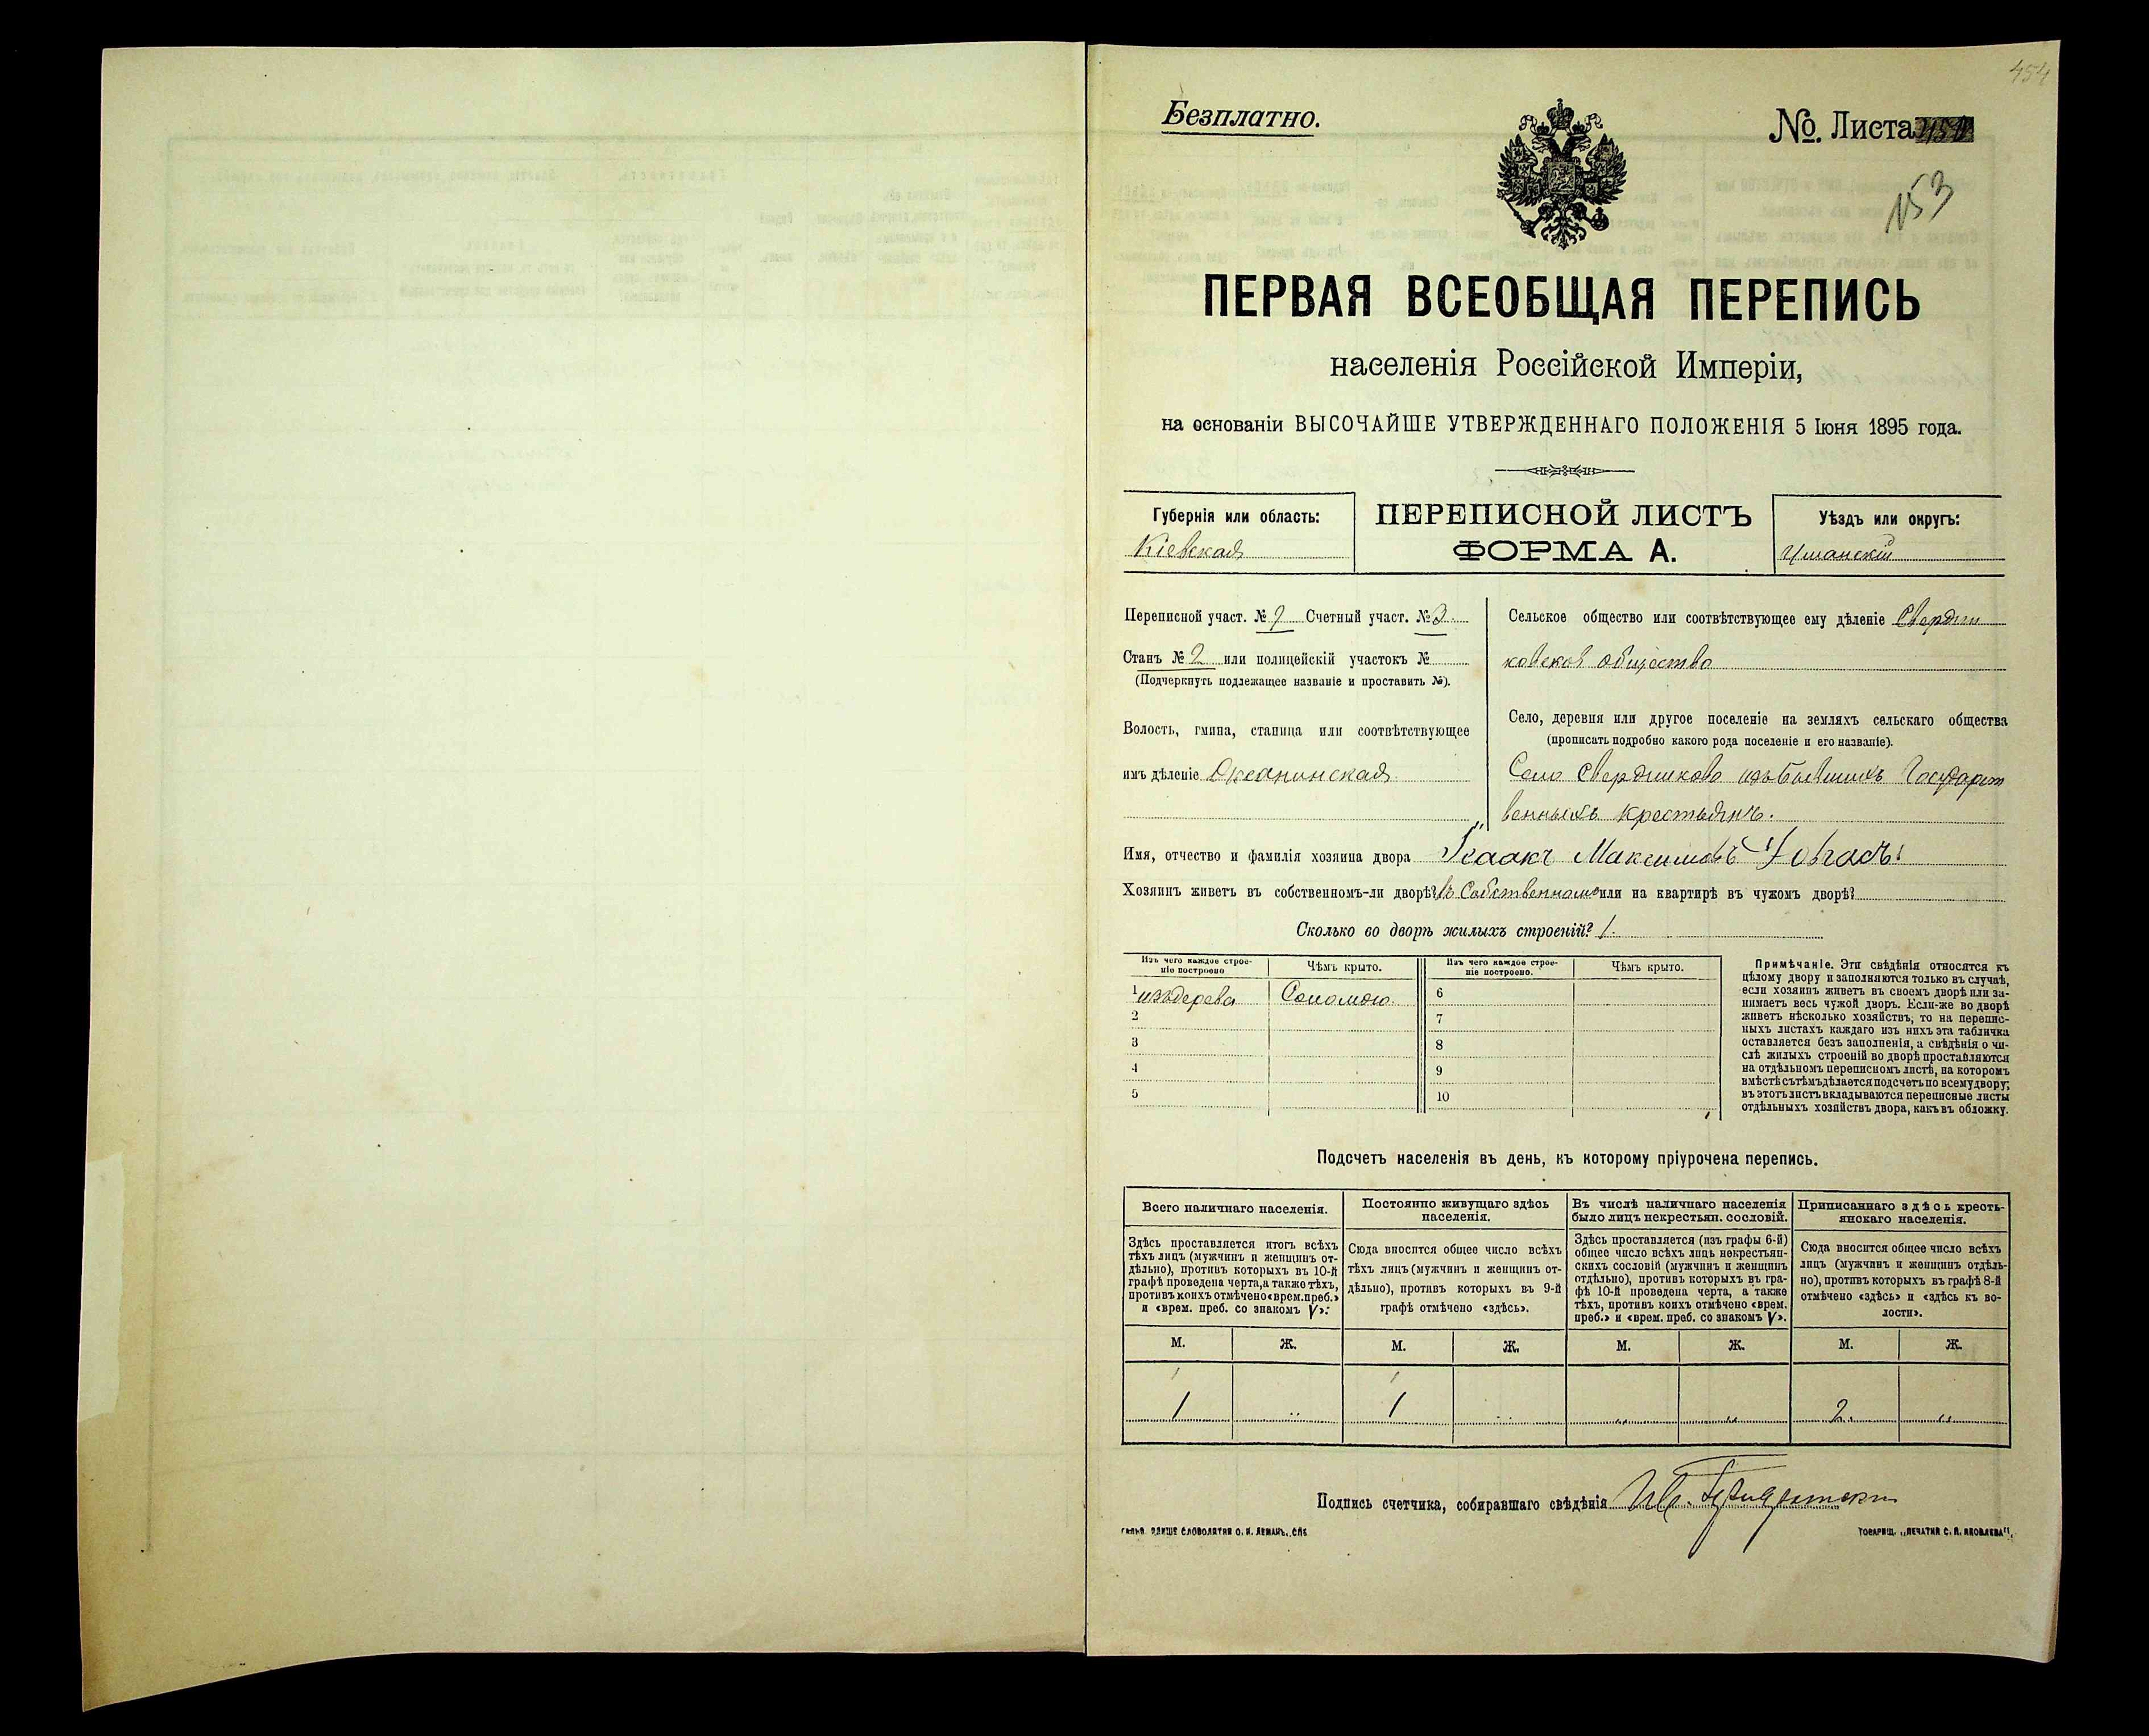 454
Безплатно.
№ Листа
153
ПЕРВАЯ ВСЕОБЩАЯ ПЕРЕПИСЬ
населенія Россійской Имперіи,
на основаніи ВЫСОЧАЙШЕ УТВЕРЖДЕННАГО ПОЛОЖЕНІЯ 5 Іюня 1895 года.
Губернія или область:
Кіевская
ПЕРЕПИСНОЙ ЛИСТЪ
ФОРМА А.
Уѣздъ или округъ:
Уманскій
Переписной участ. № 7 Счетный участ. № 3.
Станъ № 2 или полицейскій участокъ №
(Подчеркнуть подлежащее названіе и проставить №).
Волость, гмина, станица или соотвѣтствующее
имъ дѣленіе Оксанинская
Сельское общество или соотвѣтствующее ему дѣленіе Свердли
ковское общество
Село, деревня или другое поселеніе на земляхъ сельскаго общества
(прописать подробно какого рода поселеніе и его названіе).
Село Свердликово изъ бывшихъ Государст
венныхъ крестьянъ.
Имя, отчество и фамилія хозяина двора Исаакъ Максимовъ
Хозяинъ живетъ въ собственномъ-ли дворѣ? въ Собственномъ или на квартирѣ въ чужомъ дворѣ?
Сколько во дворѣ жилыхъ строеній? 1.
Изъ чего каждое строе-
ніе построено
Чѣмъ крыто.
Изъ чего каждое строе-
ніе построено.
Чѣмъ крыто.
1 изъ дерева Соломою. 6
2 7
3 8
4 9
5 10
Примѣчаніе. Эти свѣдѣнія относятся къ
цѣлому двору и заполняются только въ случаѣ,
если хозяинъ живетъ въ своемъ дворѣ или за-
нимаетъ весь чужой дворъ. Если-же во дворѣ
живетъ нѣсколько хозяйствъ, то на перепис-
ныхъ листахъ каждаго изъ нихъ эта табличка
оставляется безъ заполненія, а свѣдѣнія о чи-
слѣ жилыхъ строеній во дворѣ проставляются
на отдѣльномъ переписномъ листѣ, на которомъ
вмѣстѣ съ тѣмъ дѣлается подсчетъ по всему двору;
въ этотъ листъ вкладываются переписные листы
отдѣльныхъ хозяйствъ двора, какъ въ обложку.
Подсчетъ населенія въ день, къ которому пріурочена перепись.
Всего наличнаго населенія.
Здѣсь проставляется итогъ всѣхъ
тѣхъ лицъ (мужчинъ и женщинъ от-
дѣльно), противъ которыхъ въ 10-й
графѣ проведена черта, а также тѣхъ,
противъ коихъ отмѣчено «врем. преб.»
и «врем. преб. со знакомъ V».
Постоянно живущаго здѣсь
населенія.
Сюда вносится общее число всѣхъ
тѣхъ лицъ (мужчинъ и женщинъ от-
дѣльно), противъ которыхъ въ 9-й
графѣ отмѣчено «здѣсь».
Въ числѣ наличнаго населенія
было лицъ некрестьян. сословій.
Здѣсь проставляется (изъ графы 6-й)
общее число всѣхъ лицъ некрестьян-
скихъ сословій (мужчинъ и женщинъ
отдѣльно), противъ которыхъ въ гра-
фѣ 10-й проведена черта, а также
тѣхъ, противъ коихъ отмѣчено «врем.
преб.» и «врем. преб. со знакомъ V».
Приписаннаго здѣсь кресть-
янскаго населенія.
Сюда вносится общее число всѣхъ
лицъ (мужчинъ и женщинъ отдѣль-
но), противъ которыхъ въ графѣ 8-й
отмѣчено «здѣсь» и «здѣсь къ во-
лости».
М. Ж. М. Ж. М. Ж. М. Ж.
1 „ 1 „ „ „ 2. „
Подпись счетчика, собиравшаго свѣдѣнія
СЛОВОЛИТНЯ О. И. ЛЕМАНЪ, СПБ
ТОВАРИЩ. „ПЕЧАТНЯ С. П. ЯКОВЛЕВА".